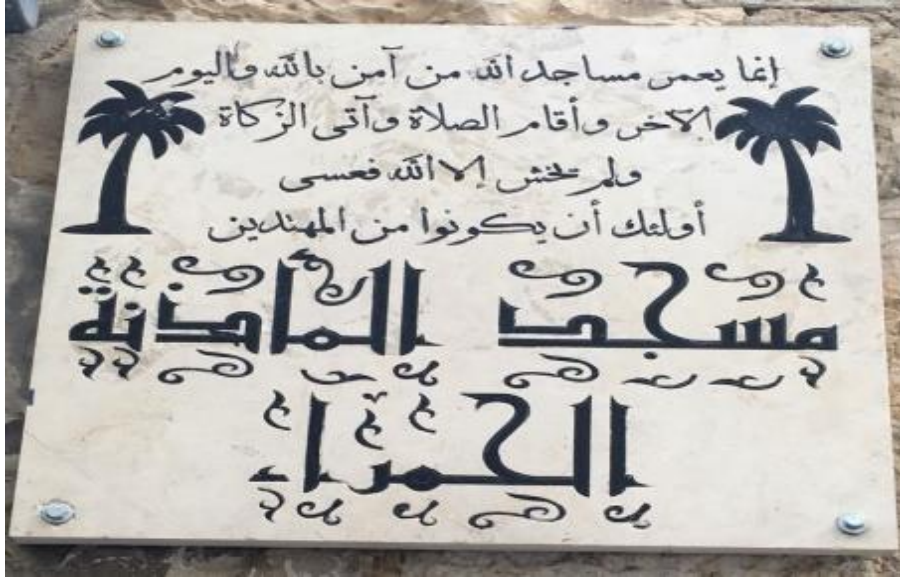 إنما يعمر مساجد الله من آمن بالله واليوم
الآخر وأقام الصلاة وآتى الزكاة
ولم يخش إلا الله فعسى
أولئك أن يكونوا من المهتدين
مسجد المأذنة
الحمراء